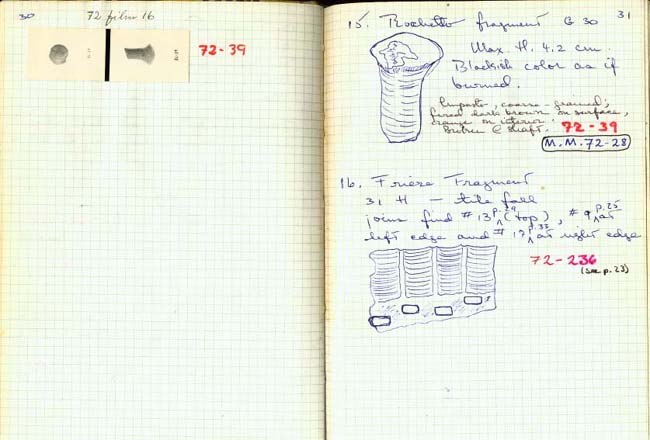 30
72 film 16
72-39
31
15. Rocchetto fragment G 30
Max. H. 4.2 cm.
Blackish color as if
burned.
Impasto, coarse-grained;
fired dark brown on surface,
orange on interior.
Broken @ shaft. 72-39
M.M. 72-28
16. Frieze Fragment
31 H — tile fall
joins find #13 p.29 (top), #9 p.25 at
left edge and #17 p.33 at right edge
72-236
(see p. 23)